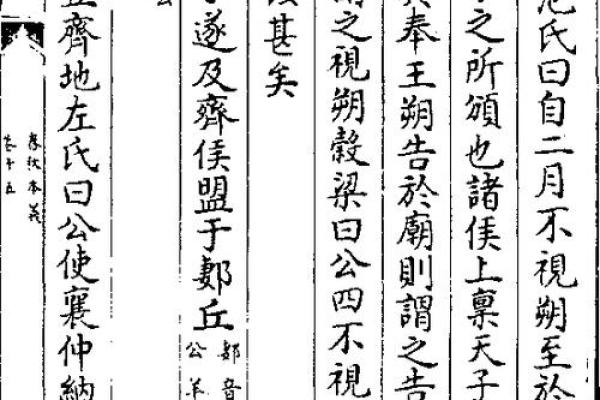 范氏曰自二月不視朔至於
之所頒也諸侯上稟天子
奉王朔告於廟則謂之告
之視朔穀梁曰公四不視
甚矣
遂及齊侯盟于郪丘
郪音
公羊
齊地左氏曰公使襄仲納
春秋本義
卷十五